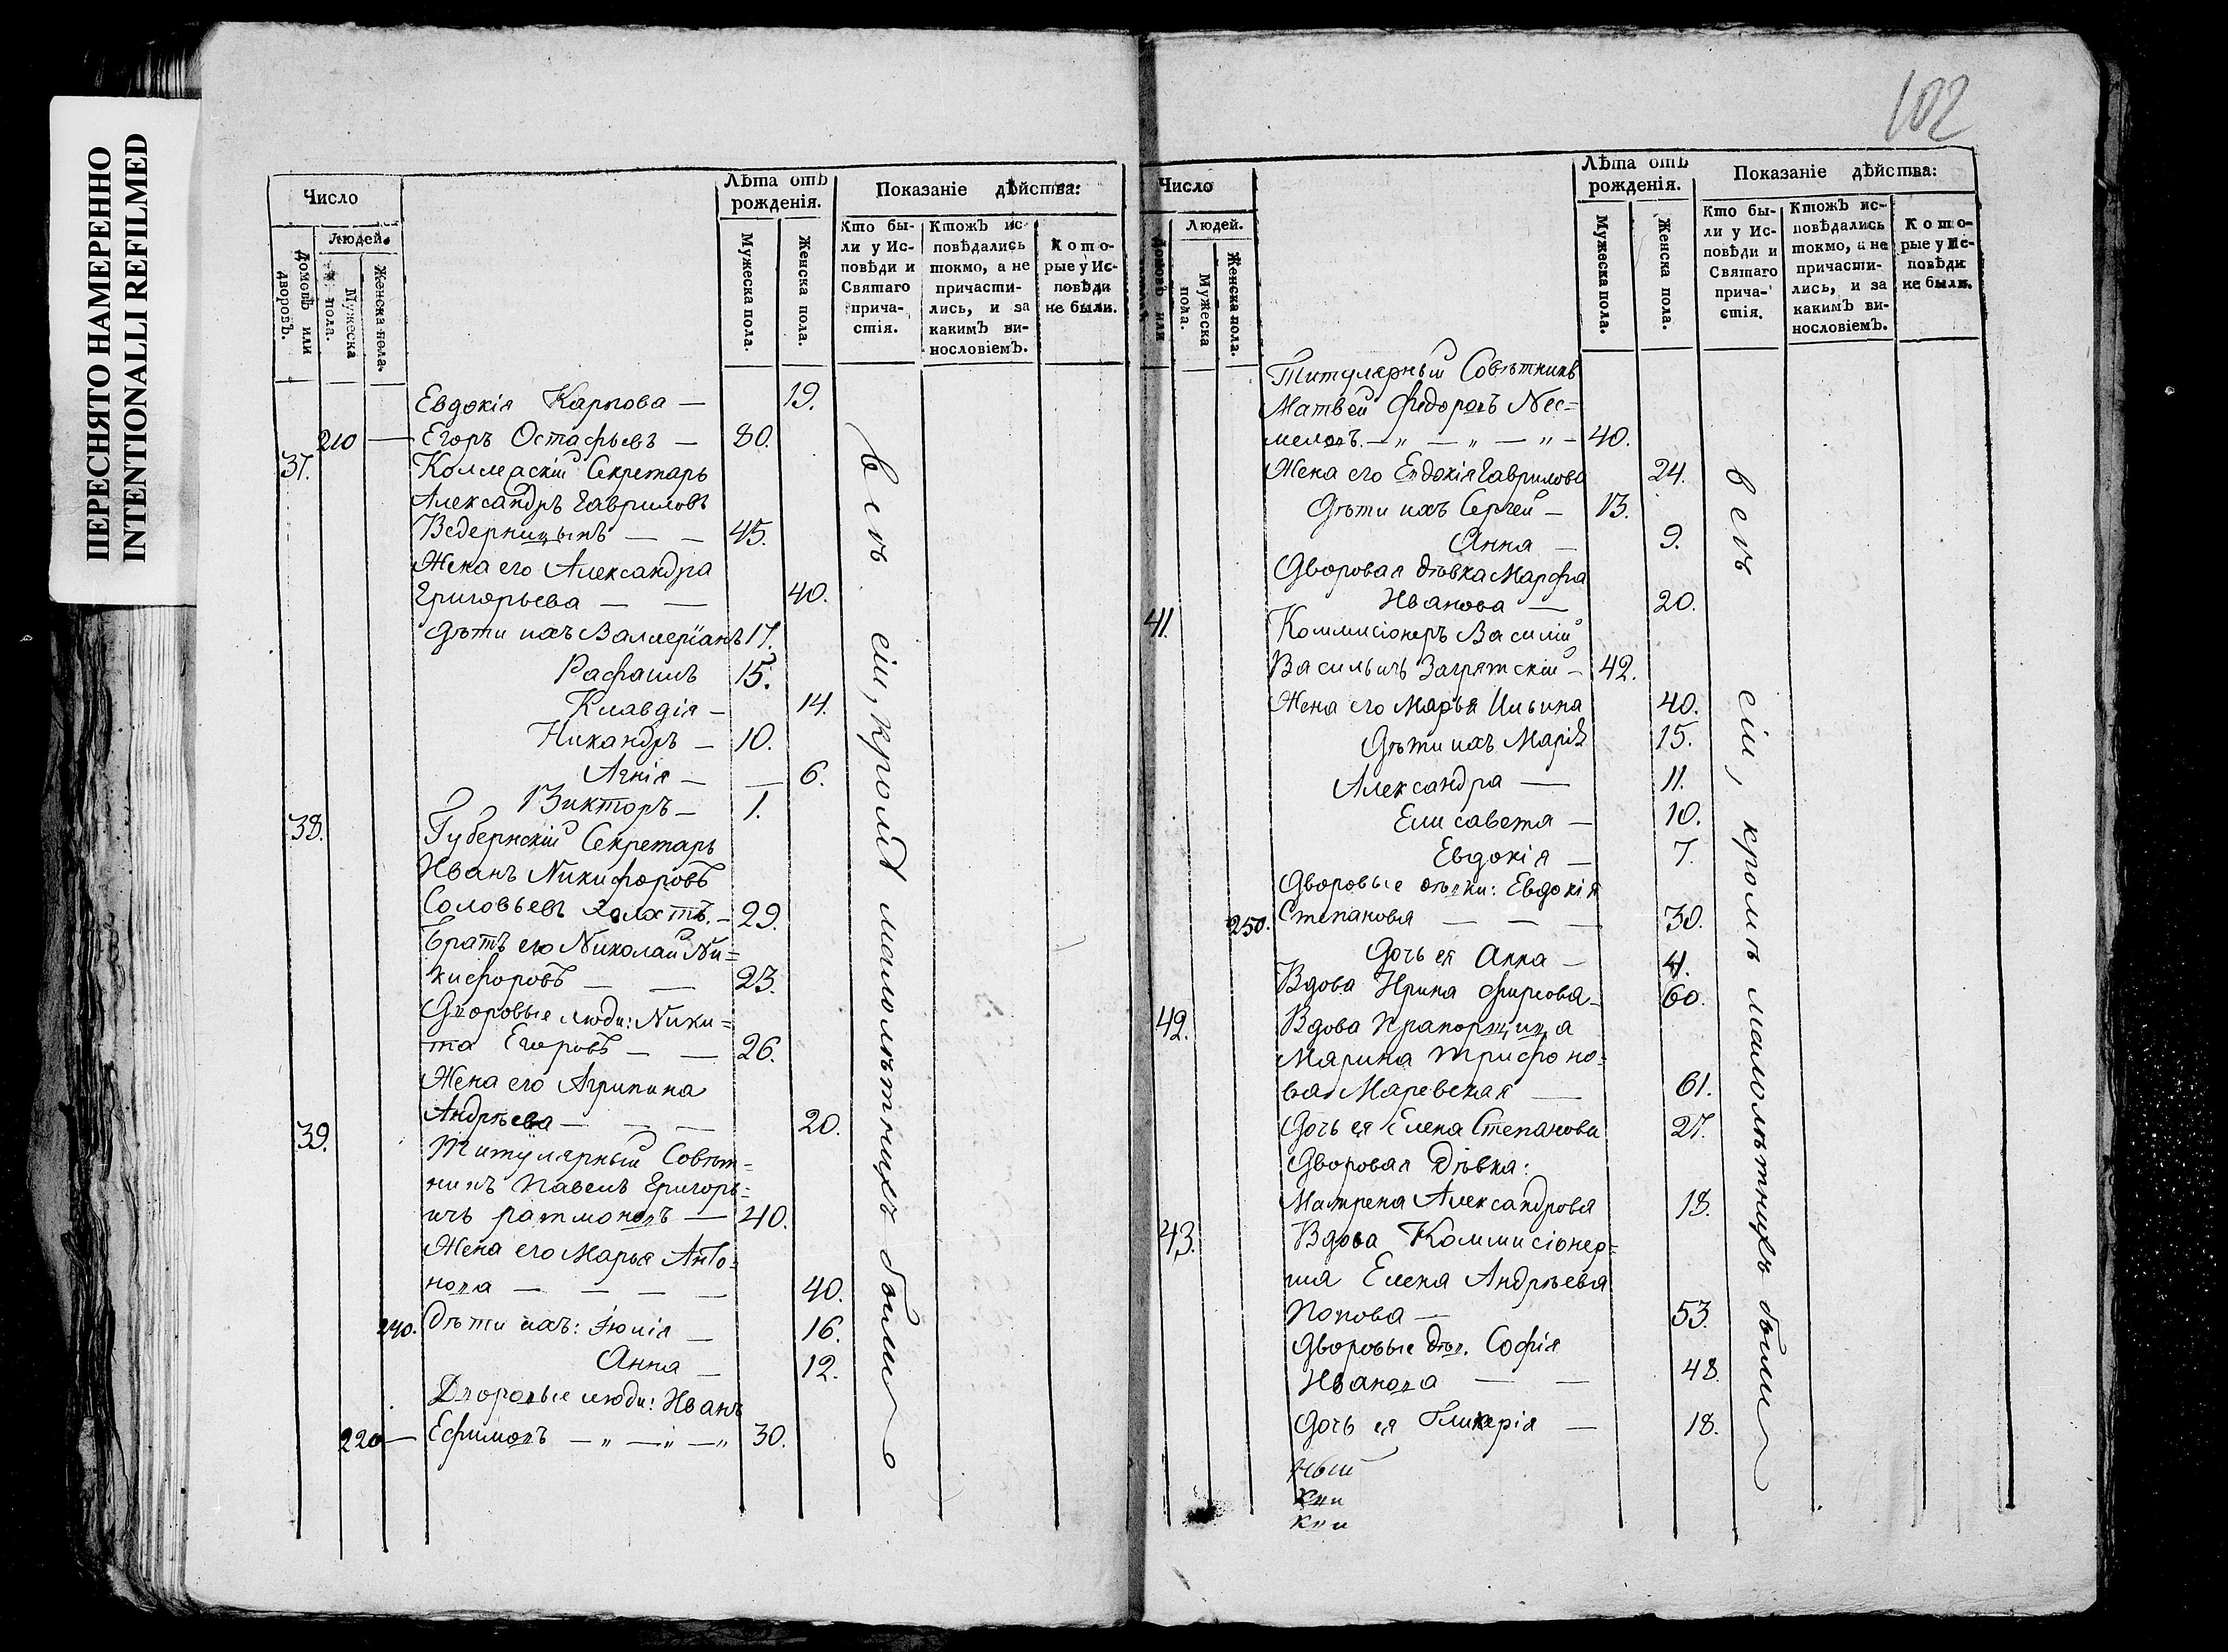 ПЕРЕСНЯТО НАМЕРЕННО
INTENTIONALLI REFILMED
Число
Людей.
Домовъ или дворовъ.
Мужеска пола.
Женска пола.
Лѣта отъ рожденія.
Мужеска пола.
Женска пола.
Показаніе дѣйства:
Кто были у Исповѣди и Святаго причастія.
Ктожъ исповѣдались токмо, а не причастились, и за какимъ винословіемъ.
Которые у Исповѣди не были.
Евдокія Карпова — 19.
210 — Егоръ Остафьевъ — 80.
37. Коллежскій Секретарь
Александръ Гавриловъ
Ведерницынъ — — 45.
Жена его Александра
Григорьева — — 40.
Дѣти ихъ Валлеріанъ 17.
Рафаилъ 15.
Клавдія — 14.
Никандръ — 10.
Агнія — — 6.
Викторъ — 1.
38. Губернскій Секретарь
Иванъ Никифоровъ
Соловьевъ холостъ. — 29.
Братъ его Николай Ни=
кифоровъ — — 23.
Дворовые люди: Ники=
та Егоровъ — — 26.
Жена его Агрипина
Андрѣева — — — 20.
39. Титулярный Совѣт=
никъ Павелъ Григорь=
ичъ Ратмоновъ — 40.
Жена его Марья Анто=
нова — — — — 40.
240. Дѣти ихъ: Іюлія — 16.
Анна — 12.
Дворовые люди: Иванъ
220 — Ефимовъ — „ — „ — „ 30.
всѣ сіи, кромѣ малолѣтнихъ были
102
Число
Людей.
Домовъ или
Мужеска пола.
Женска пола.
Лѣта отъ рожденія.
Мужеска пола.
Женска пола.
Показаніе дѣйства:
Кто были у Исповѣди и Святаго причастія.
Ктожъ исповѣдались токмо, а не причастились, и за какимъ винословіемъ.
Которые у Исповѣди не были.
Титулярный Совѣтникъ
Матвей Федоровъ Нес=
меловъ. — „ — „ — „ — 40.
Жена его Евдокія Гаврилова 24.
Дѣти ихъ Сергей — 13.
Анна — 9.
Дворовая дѣвка Марфа
Иванова — 20.
41. Коммисіонеръ Василій
Васильичъ Загрятскій — 42.
Жена его Марья Ильина 40.
Дѣти ихъ Марія 15.
Александра — 11.
Елисавета — 10.
Евдокія — 7.
Дворовые дѣвки: Евдокія
250. Степанова — — — 30.
Дочь ея Анна — 4.
Вдова Ирина Фирсова — 60.
42. Вдова Прапорщица
Марина Трифоно=
ва Маревская — 61.
Дочь ея Елена Степанова 27.
Дворовая Дѣвка:
Матрена Александрова 18.
43. Вдова Коммисіонер=
ша Елена Андрѣева
Попова — 53.
Дворовые дѣв. Софія
Иванова — — 48.
Дочь ея Гликерія — 18.
ный
кни
кни
всѣ сіи, кромѣ малолѣтнихъ были